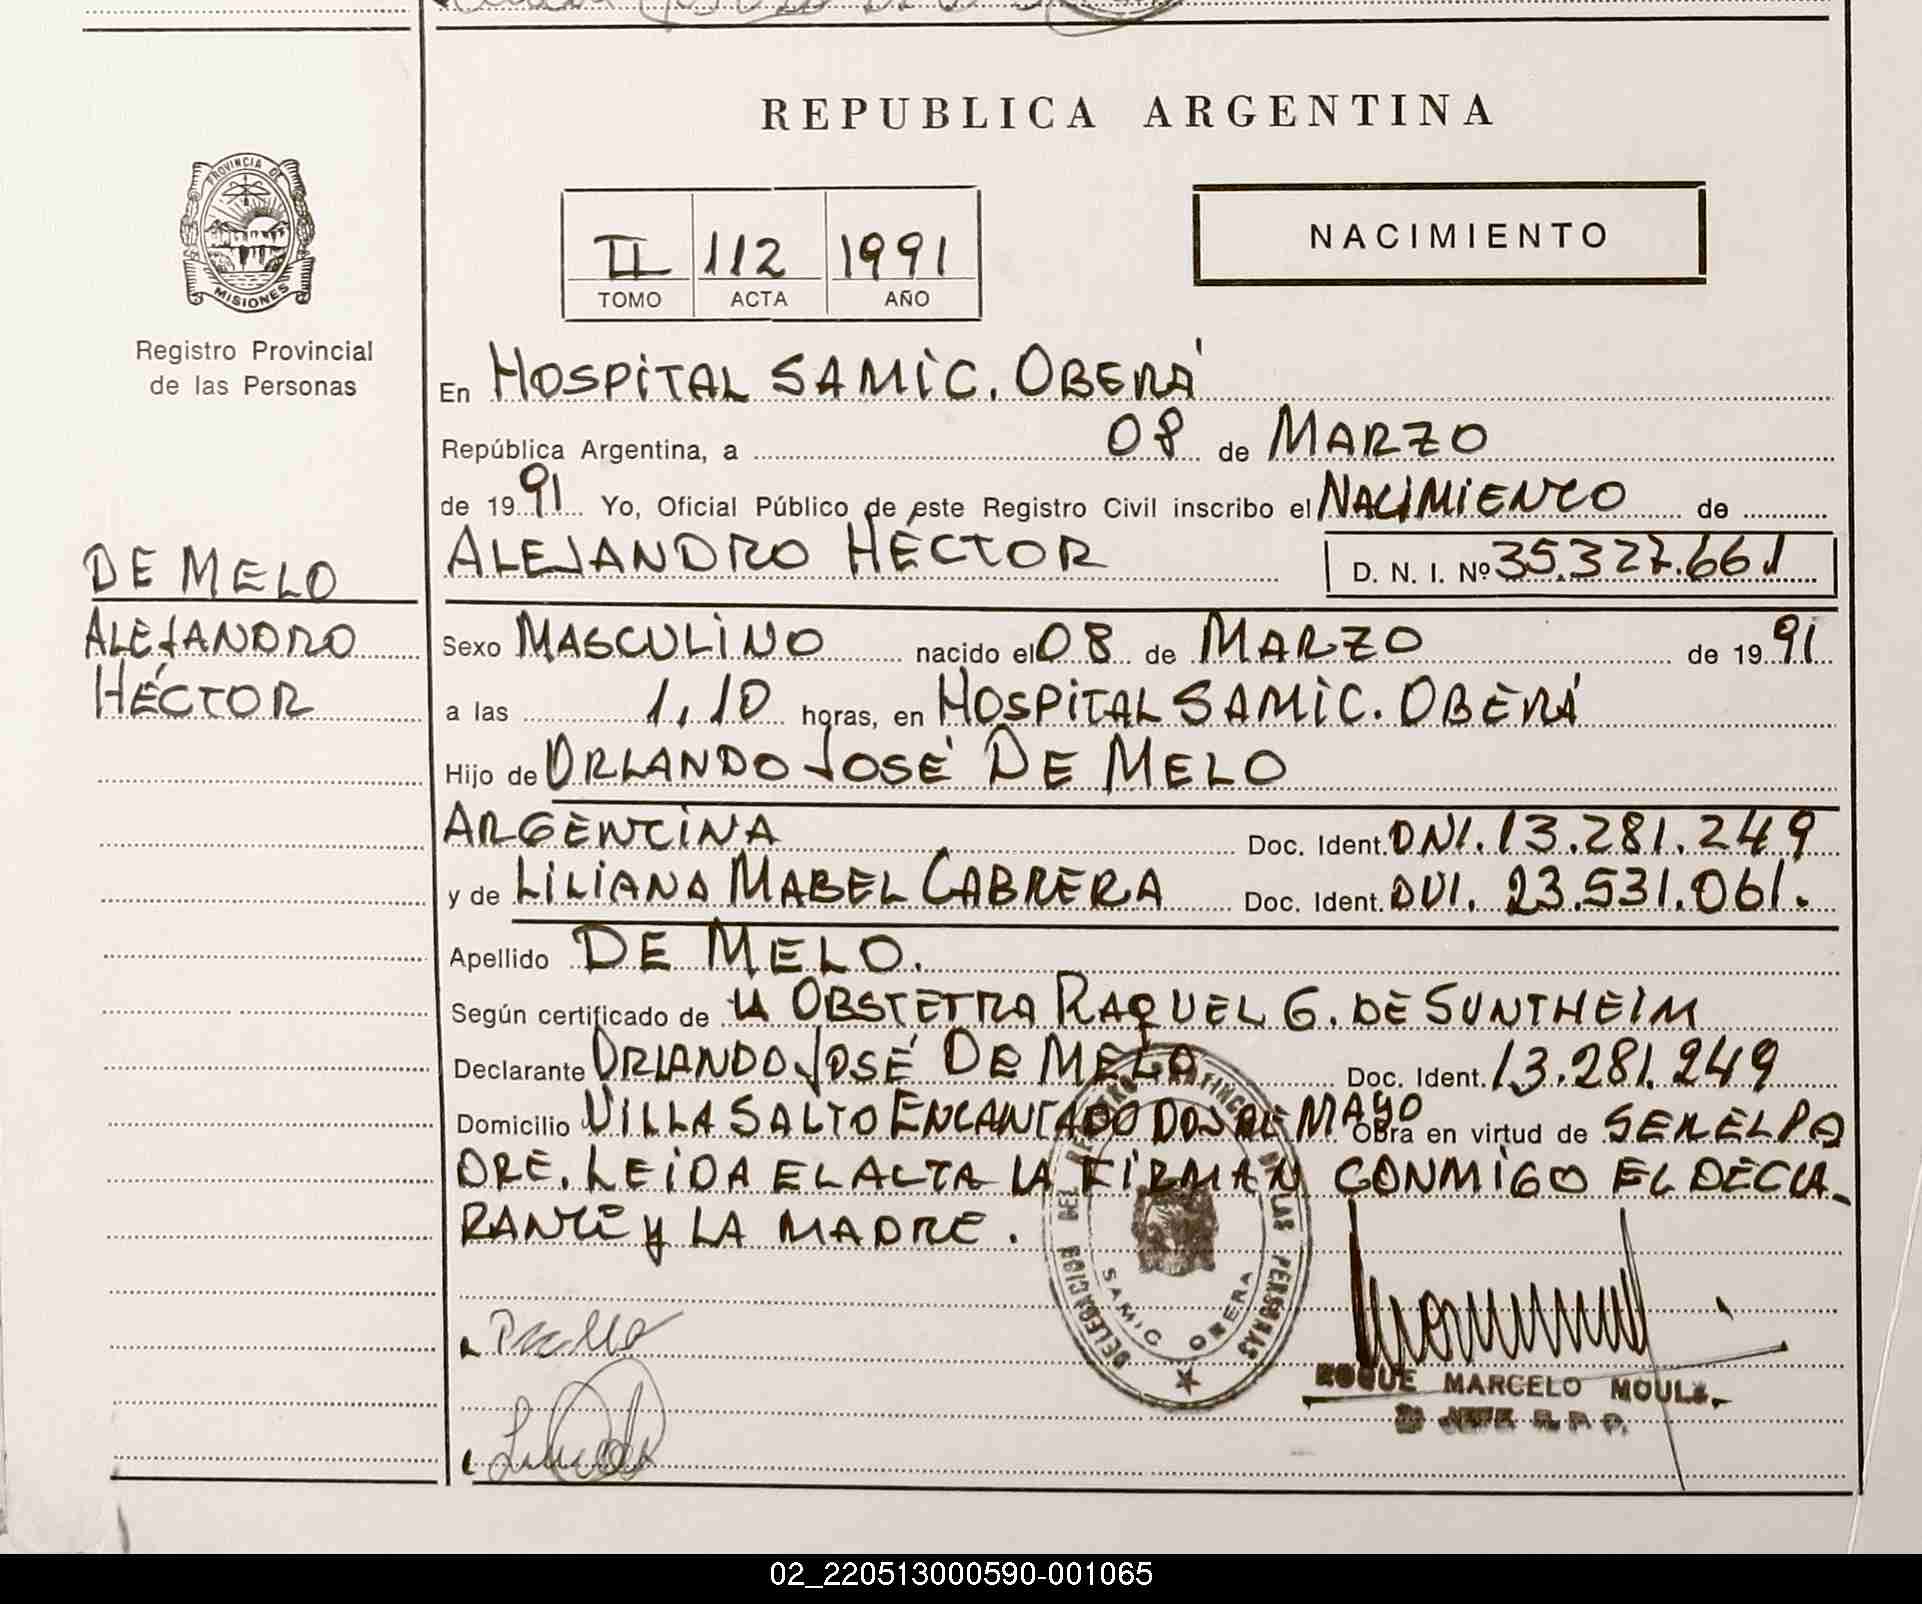 REPUBLICA ARGENTINA
PROVINCIA DE
MISIONES
Registro Provincial
de las Personas
II 112 1991
TOMO ACTA AÑO
NACIMIENTO
En HOSPITAL SAMIC. OBERÁ
República Argentina, a 08 de MARZO
de 1991 Yo, Oficial Público de este Registro Civil inscribo el NACIMIENTO de
ALEJANDRO HÉCTOR D. N. I. Nº 35.327.661
DE MELO
ALEJANDRO
HÉCTOR
Sexo MASCULINO nacido el 08 de MARZO de 1991
a las 1,10 horas, en HOSPITAL SAMIC. OBERÁ
Hijo de ORLANDO JOSÉ DE MELO
ARGENTINA Doc. Ident. DNI. 13.281.249
y de LILIANA MABEL CABRERA Doc. Ident. DNI. 23.531.061.
Apellido DE MELO.
Según certificado de LA OBSTETRA RAQUEL G. DE SUNTHEIM
Declarante ORLANDO JOSÉ DE MELO Doc. Ident. 13.281.249
Domicilio VILLA SALTO ENCANTADO DOS DE MAYO Obra en virtud de SER EL PA
DRE. LEIDA EL ACTA LA FIRMAN CONMIGO EL DECLA-
RANTE y LA MADRE.
DELEGACION DEL REGISTRO DE LAS PERSONAS
SAMIC OBERA
ROQUE MARCELO
02_220513000590-001065